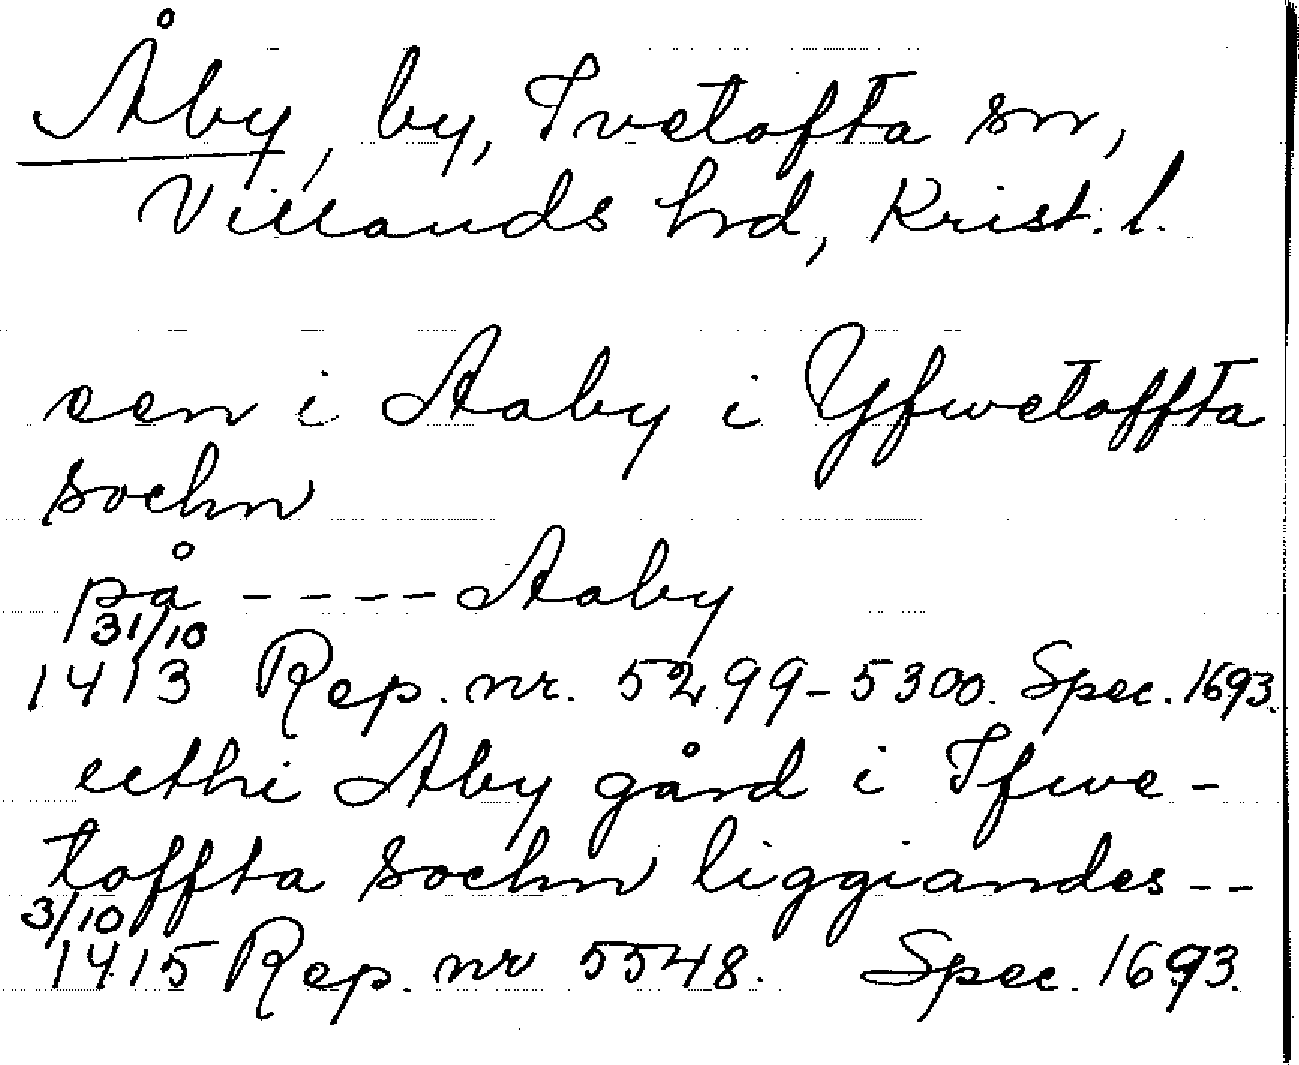 Åby, by, Tvetofta sn,
Villands hrd, Krist. l.
een i Aaby i Yfwetoffta
sochn
på - - - - Aaby
31/10
1413 Rep. nr. 5299-5300. Spec. 1693.
ecthi Aby gård i Ifwe-
toffta sochn liggiandes - -
3/10
1415 Rep. nr 5548. Spec. 1693.